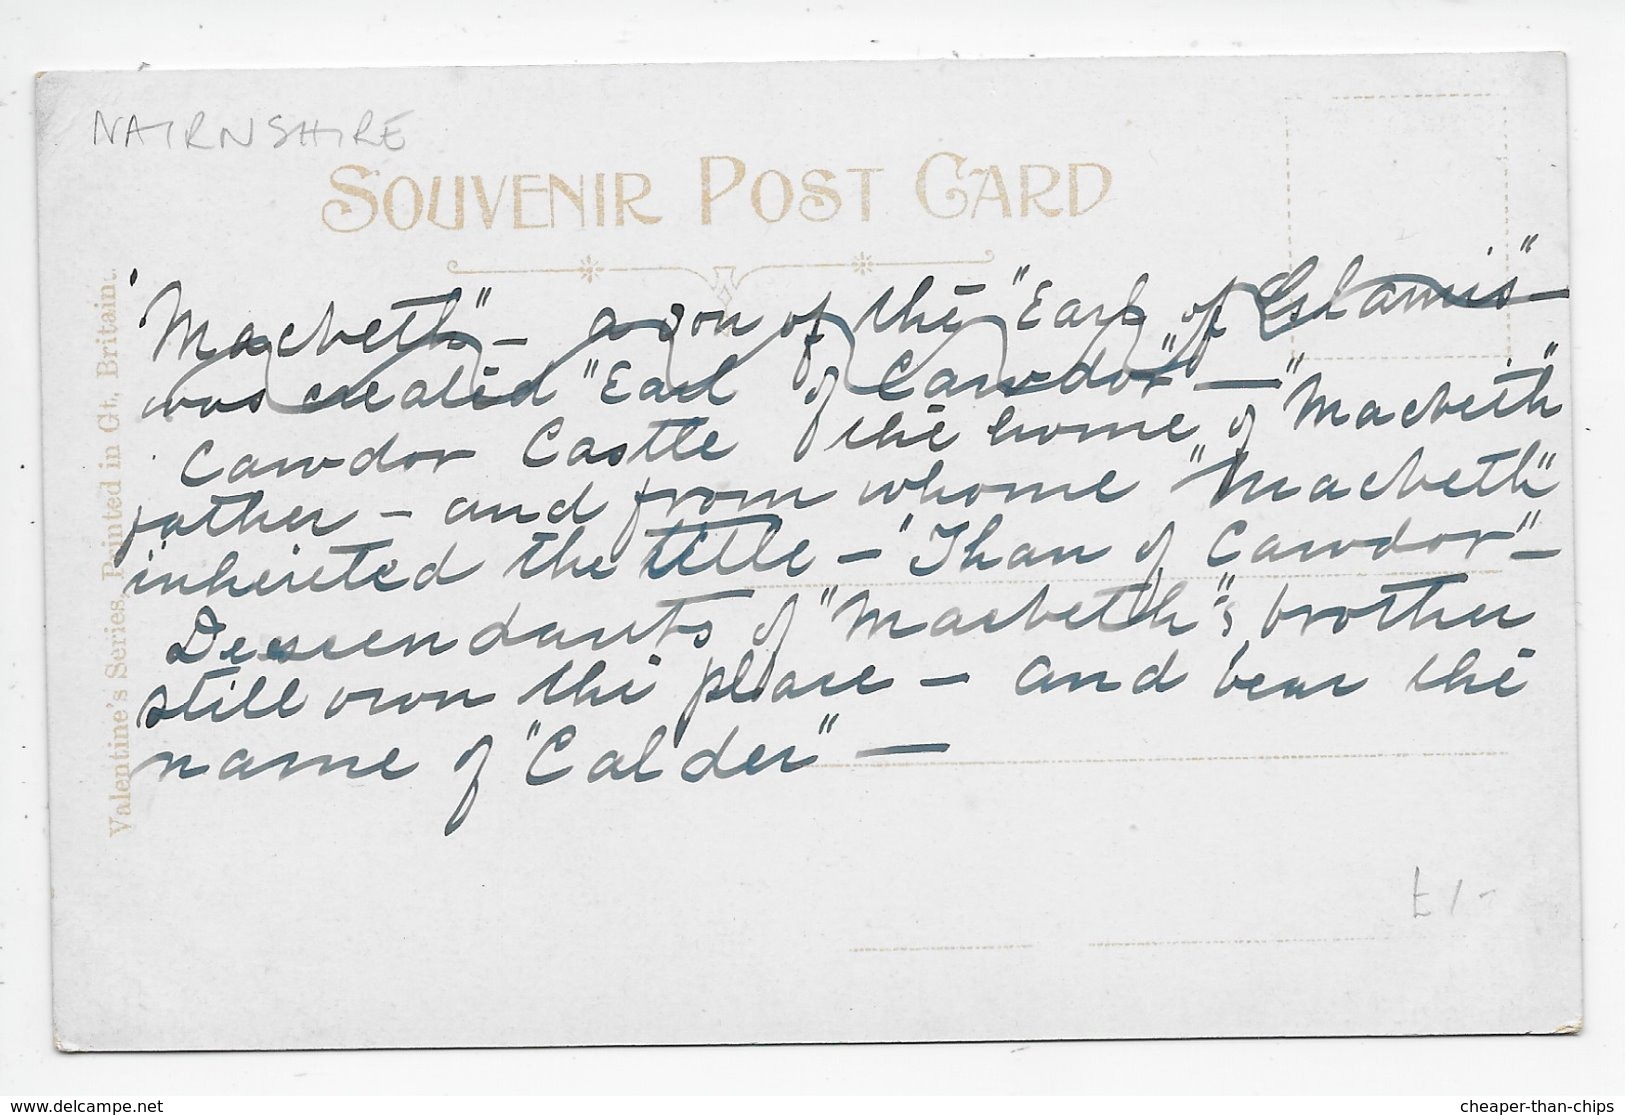 NAIRNSHIRE
SOUVENIR POST CARD
Valentine's Series, Printed in Gt. Britain.
"Macbeth" – a son of the "Earl of Glamis" –
was created "Earl of Cawdor" – "
Cawdor Castle the home of "Macbeth"
father – and from whome "Macbeth"
inhereted the title – "Than of Cawdor" –
Descendants of "Macbeth"'s brother
still own the place – and bear the
name of "Calder" –
£1-
www.delcampe.net
cheaper-than-chips